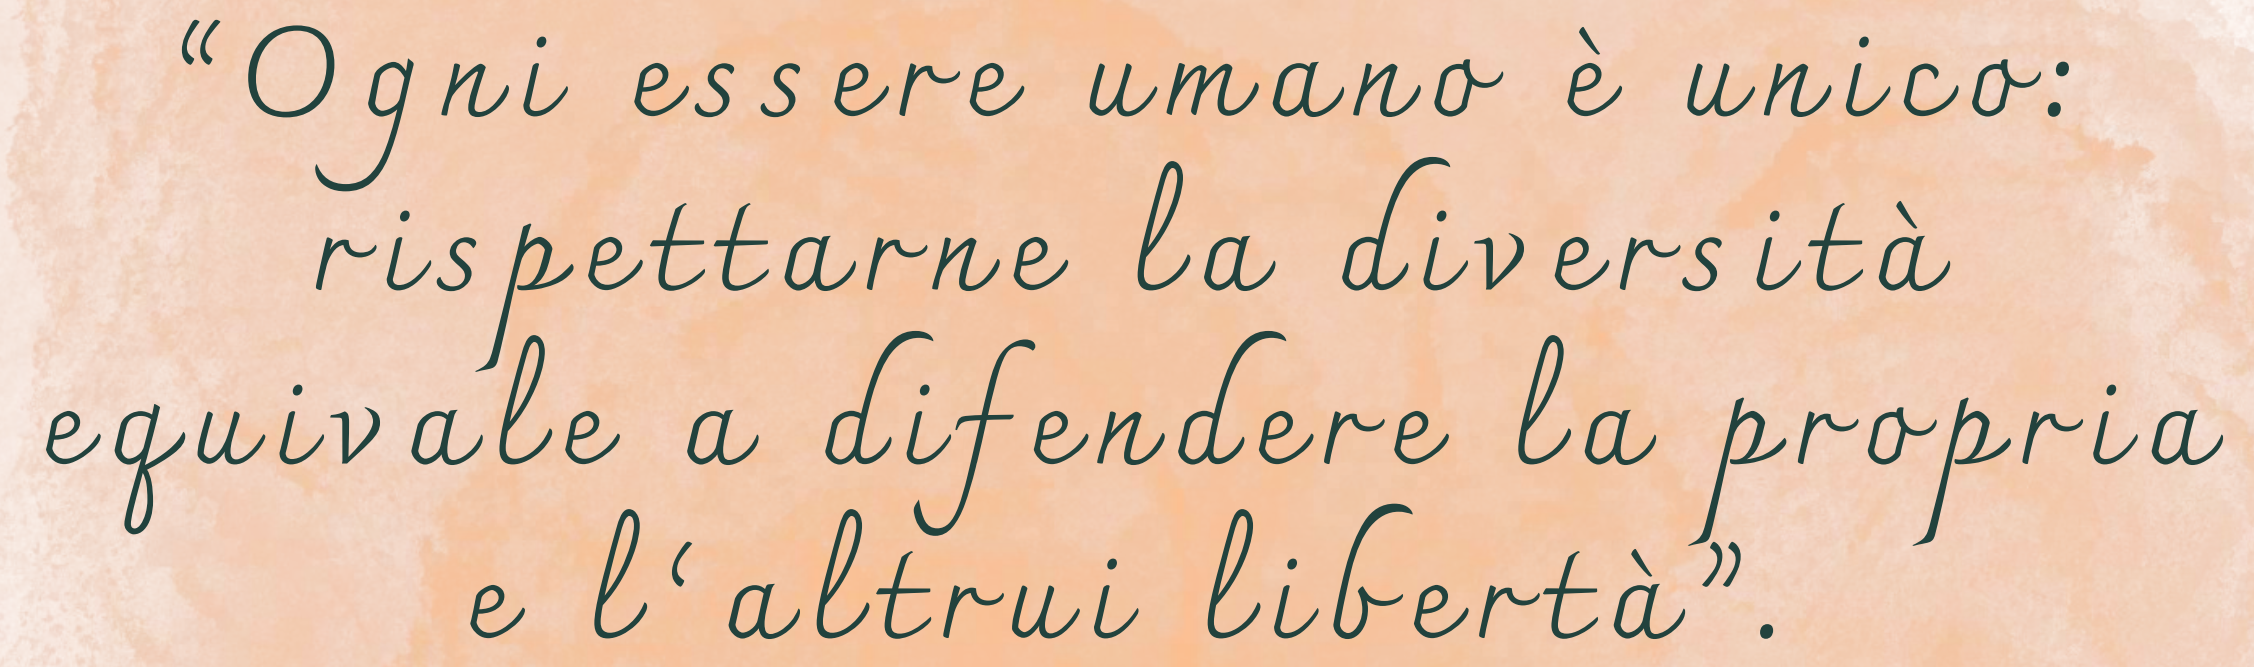 “Ogni essere umano è unico:
rispettarne la diversità
equivale a difendere la propria
e l‘altrui libertà”.